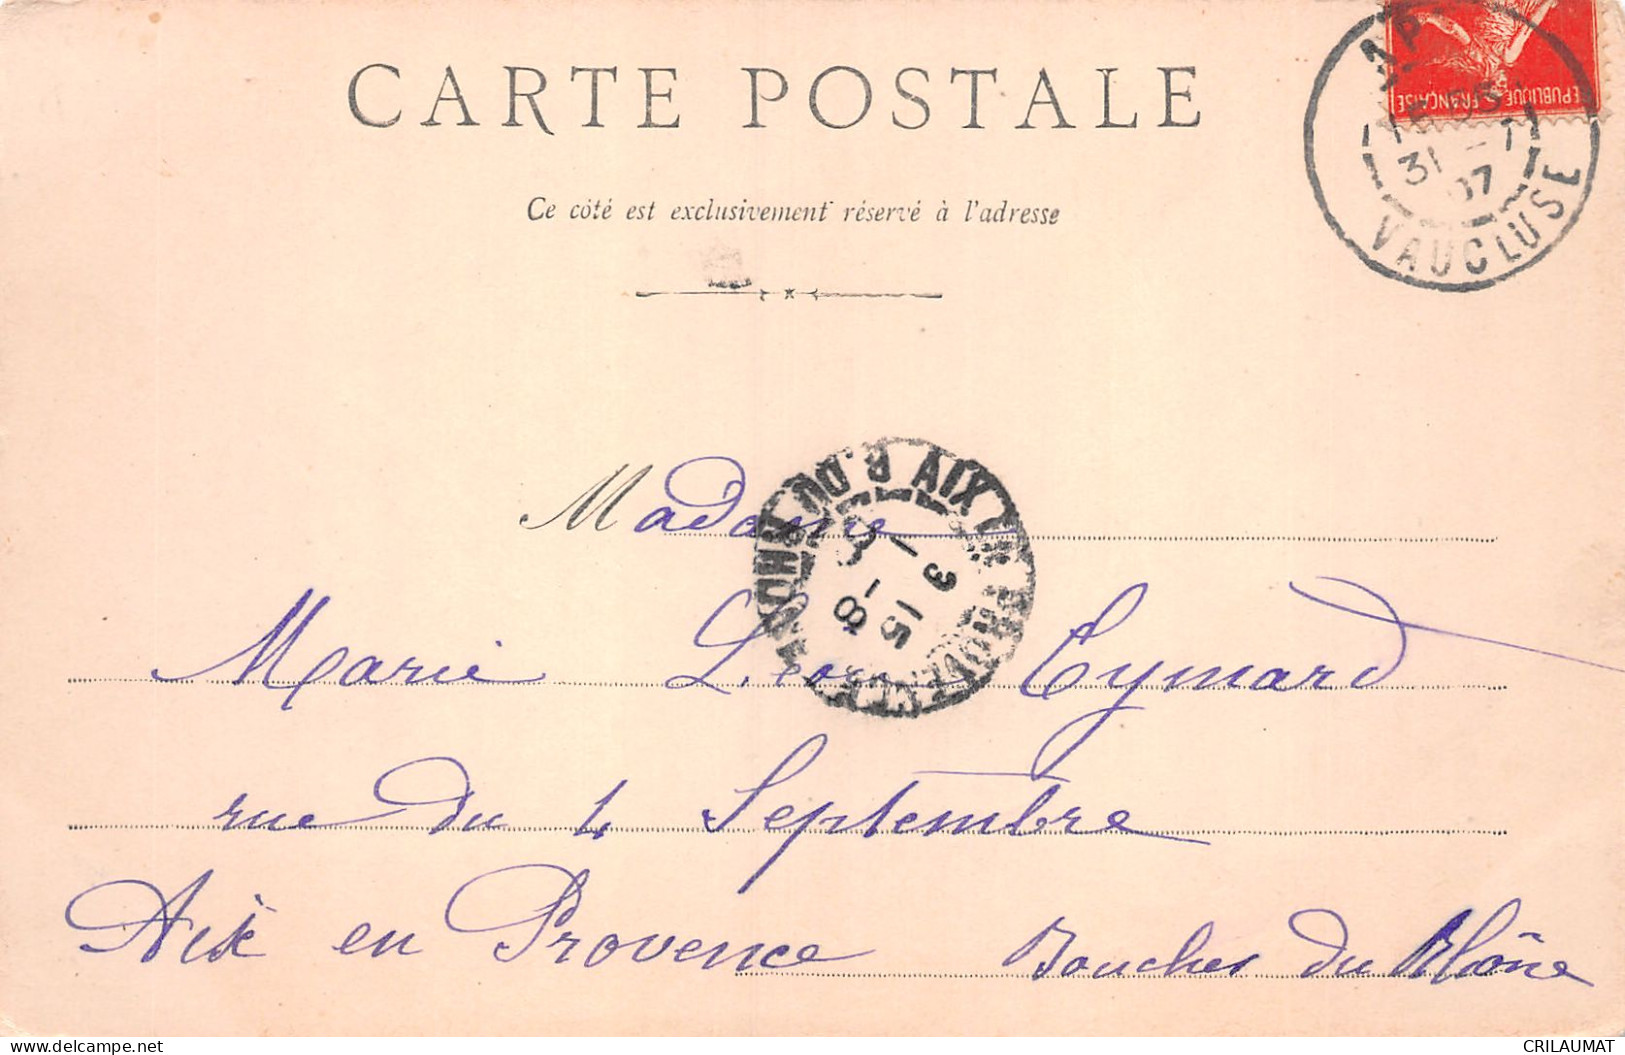 CARTE POSTALE
Ce côté est exclusivement réservé à l'adresse
RÉPUBLIQUE FRANÇAISE
31 - 7
07
VAUCLUSE
AIX EN PROVENCE
B. DU RHONE
Madame
Marie Léon Eymard
rue du 4 Septembre
Aix en Provence Bouches du Rhône
CRILAUMAT